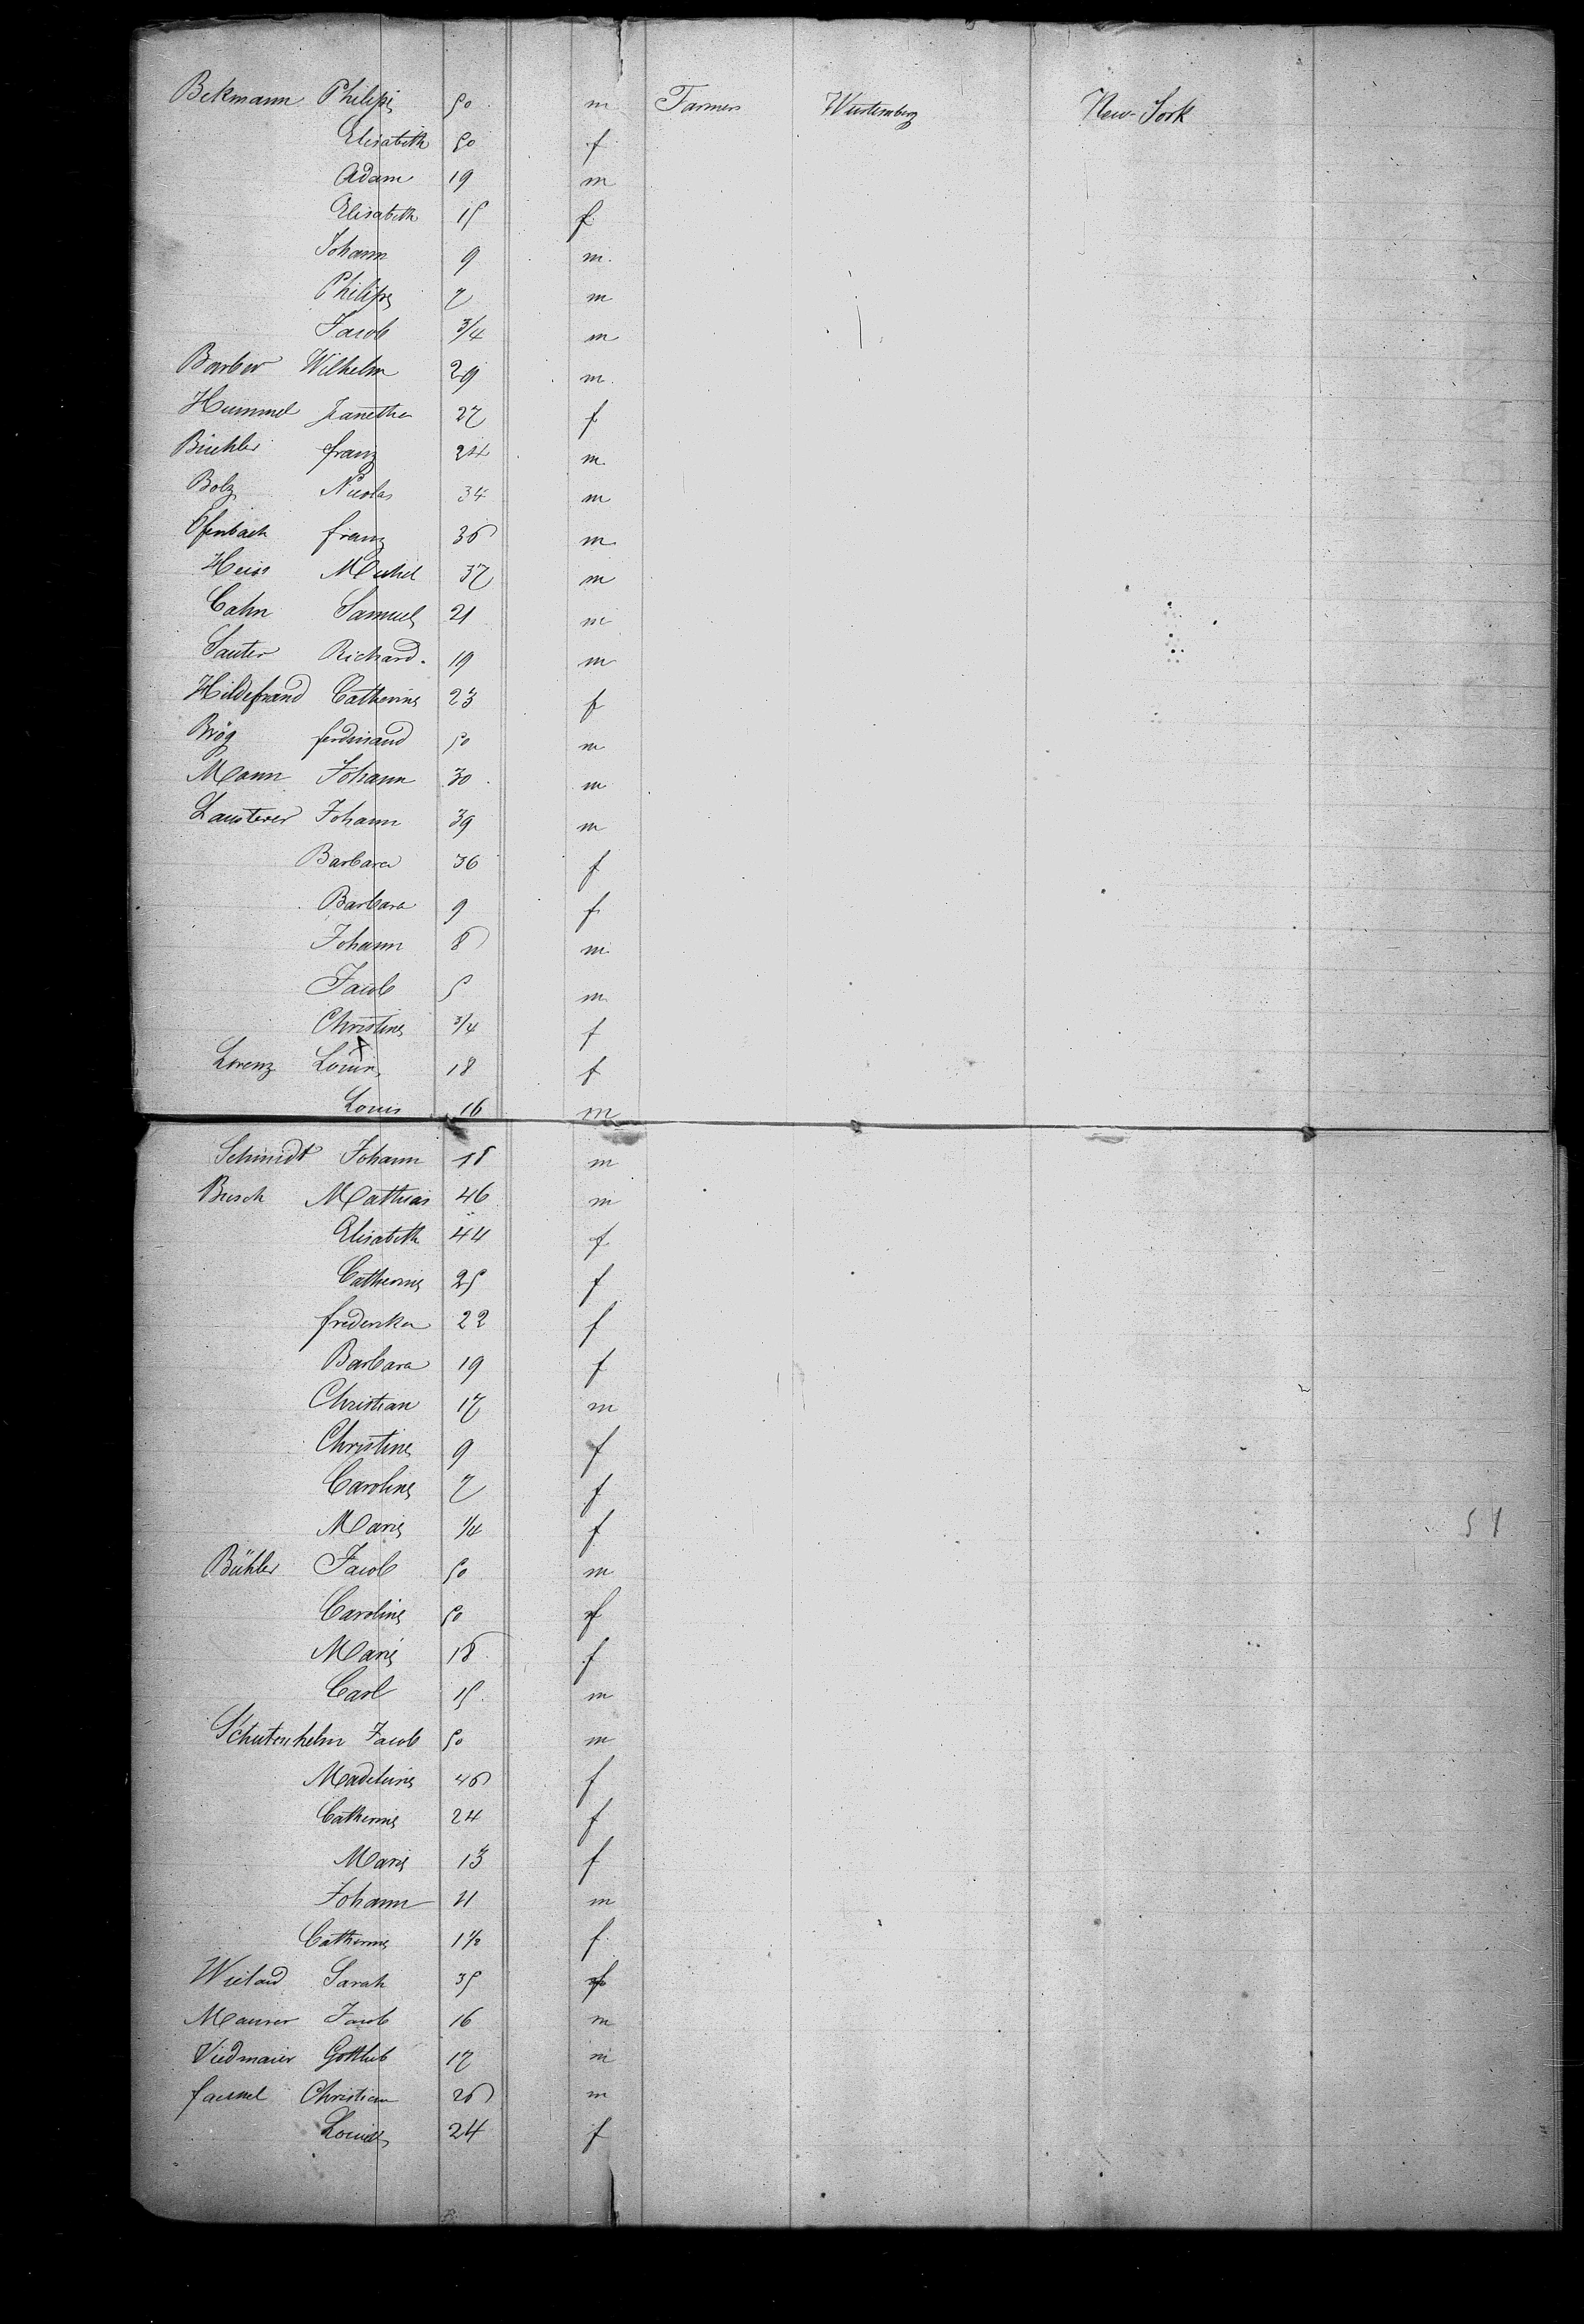 Bekmann Philipp 50 m Farmers Wurtemberg New-York
Elisabeth 50 f
Adam 19 m
Elisabeth 15 f
Johann 9 m
Philipp 7 m
Jacob 3/4 m
Barber Wilhelm 29 m
Hummel Janetha 27 f
Biehler franz 24 m
Bolz Nicolas 34 m
Ofenbach franz 36 m
Heiss Michel 37 m
Cahn Samuel 21 m
Sauter Richard. 19 m
Hildefrand Catherine 23 f
Brög ferdinand 50 m
Mann Johann 30 m
Lausterer Johann 39 m
Barbara 36 f
Barbara 9 f
Johann 8 m
Jacob 5 m
Christine 3/4 f
Lorenz Louise 18 f
Louis 16 m
Schmidt Johann 18 m
Busch Mathias 46 m
Elisabeth 44 f
Catherine 25 f
frederika 22 f
Barbara 19 f
Christian 17 m
Christine 9 f
Caroline 7 f
Marie 1/4 f
51
Bühler Jacob 50 m
Caroline 50 f
Marie 18 f
Carl 15 m
Schutenhelm Jacob 50 m
Madeleine 46 f
Catherine 24 f
Marie 13 f
Johann 11 m
Catherine 1 1/2 f
Wieland Sarah 35 f
Maurer Jacob 16 m
Viedmaier Gottlieb 17 m
Christian 26 m
Louise 24 f